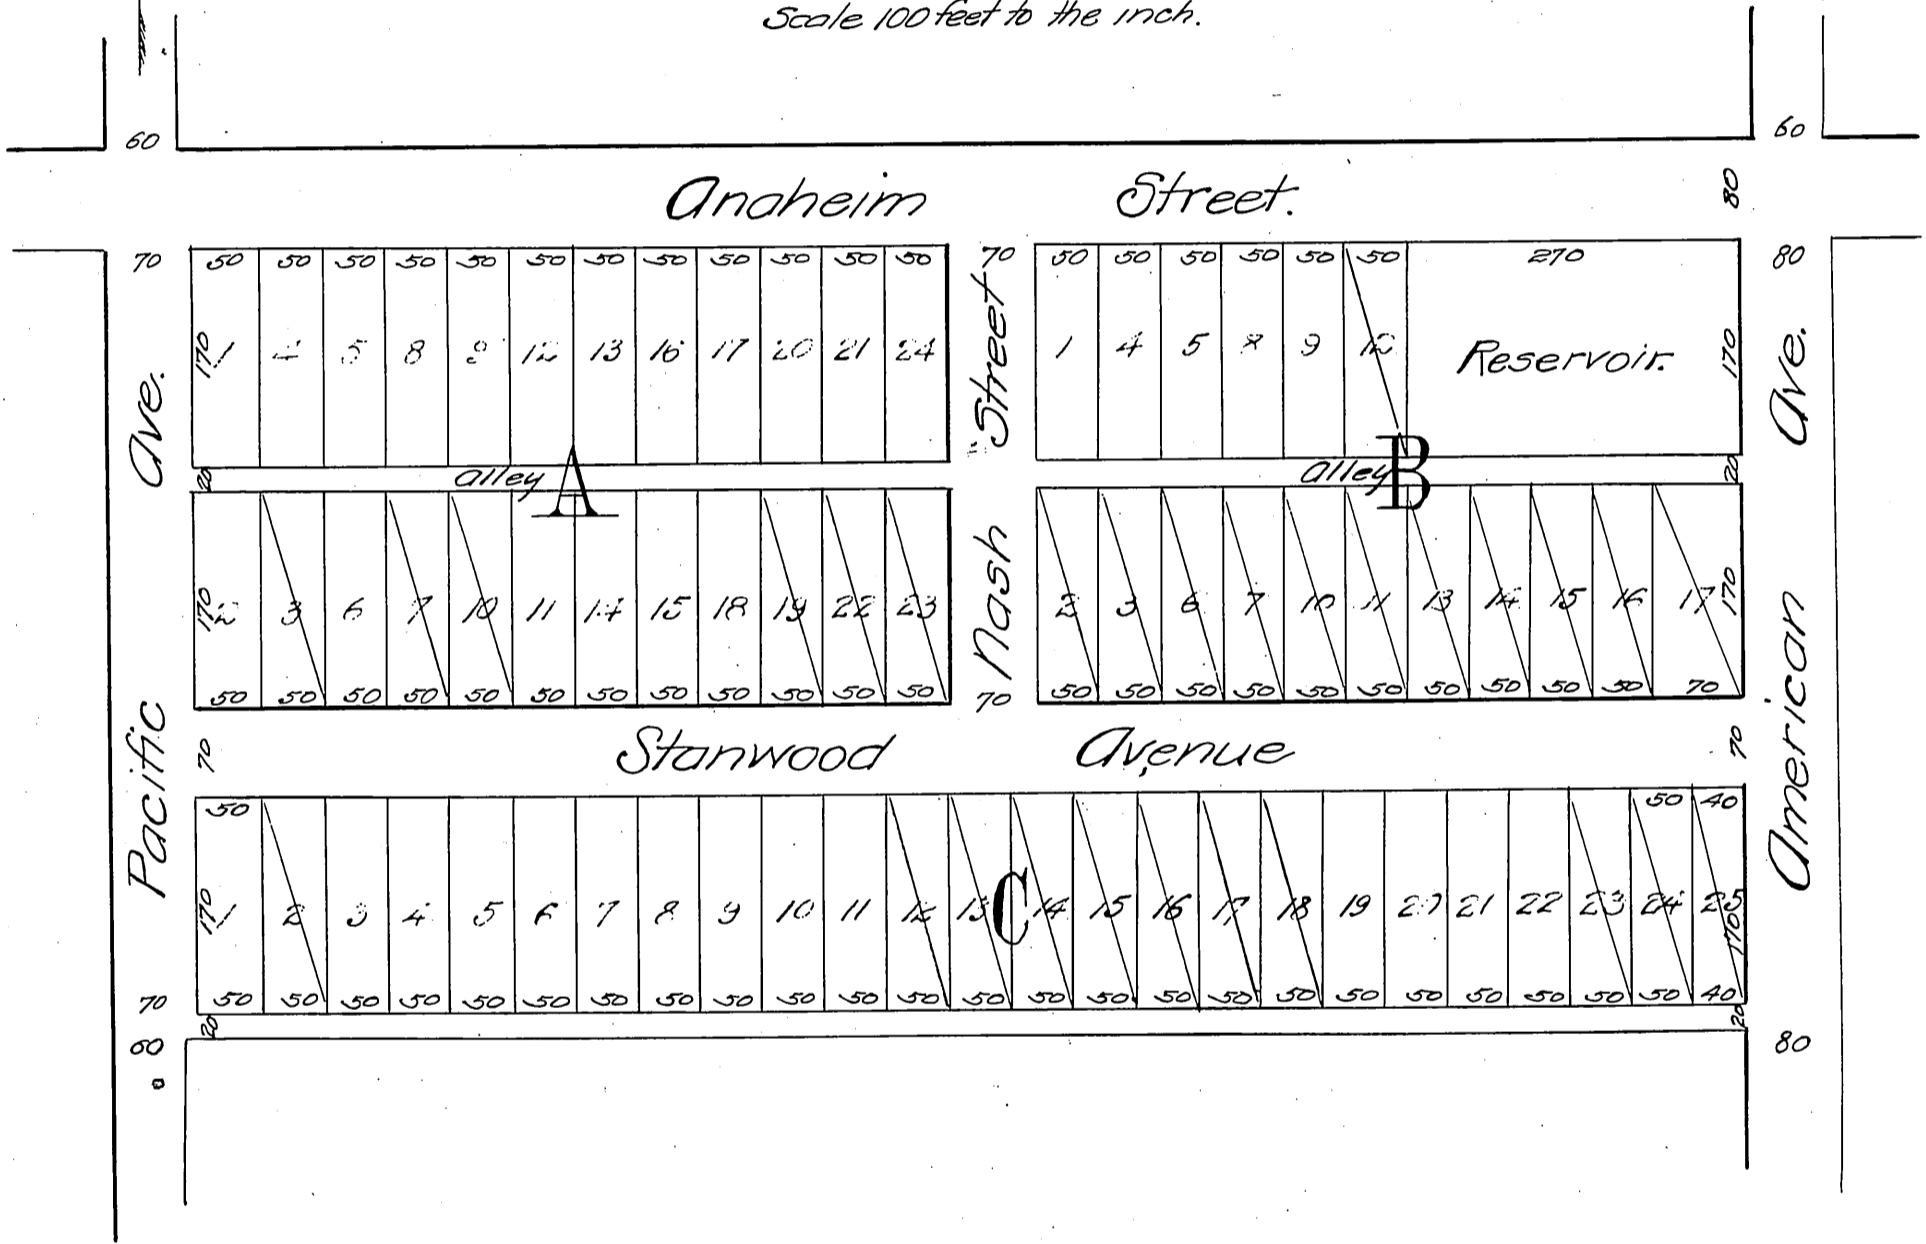 Scale 100 feet to the inch.
60 60
Anaheim Street. 80
70 50 50 50 50 50 50 50 50 50 50 50 50 70 50 50 50 50 50 50 270 80
170 1 4 5 8 9 12 13 16 17 20 21 24 1 4 5 8 9 12 Reservoir. 170
20 Alley A Alley B 20
170 2 3 6 7 10 11 14 15 18 19 22 23 2 3 6 7 10 11 13 14 15 16 17 170
50 50 50 50 50 50 50 50 50 50 50 50 70 50 50 50 50 50 50 50 50 50 50 70
Nash Street
Pacific Ave.
American Ave.
70 Stanwood Avenue 70
50 50 40
170 1 2 3 4 5 6 7 8 9 10 11 12 13 C 14 15 16 17 18 19 20 21 22 23 24 25 170
70 50 50 50 50 50 50 50 50 50 50 50 50 50 50 50 50 50 50 50 50 50 50 50 50 40
20 20
60 80